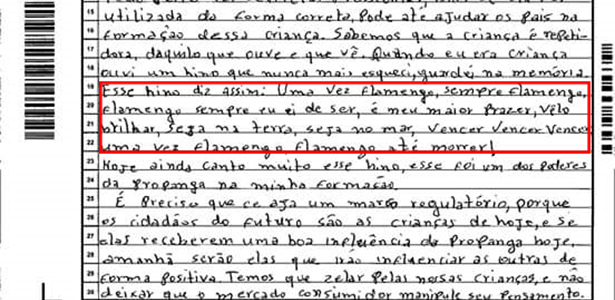 utilizada da forma correta, Pode até ajudar os Pais na
formação dessa criança. Sabemos que a criança é repeti-
dora, daquilo que ouve e que vê. Quando eu era criança
ouvi um hino que nunca mais esqueci, guardei na memória.
Esse hino diz assim: Uma vez flamengo, sempre flamengo,
flamengo sempre eu ei de ser, é meu maior Prazer, vêlo
brilhar, seja na terra, seja no mar, vencer vencer vencer
uma vez flamengo flamengo até morrer!
Hoje ainda canto muito esse hino, esse foi um dos Poderes
da Propanga na minha formação.
É Preciso que ce aja um marco regulatório, porque
os cidadãos do futuro são as crianças de hoje, e se
elas receberem uma boa influência da Propanga hoje,
amanhã serão elas que irão influenciar as outras de
forma Positiva. Temos que zelar Pelas nossas crianças, e não
deixar que o mercado consumidor manipule seu Pensamento.